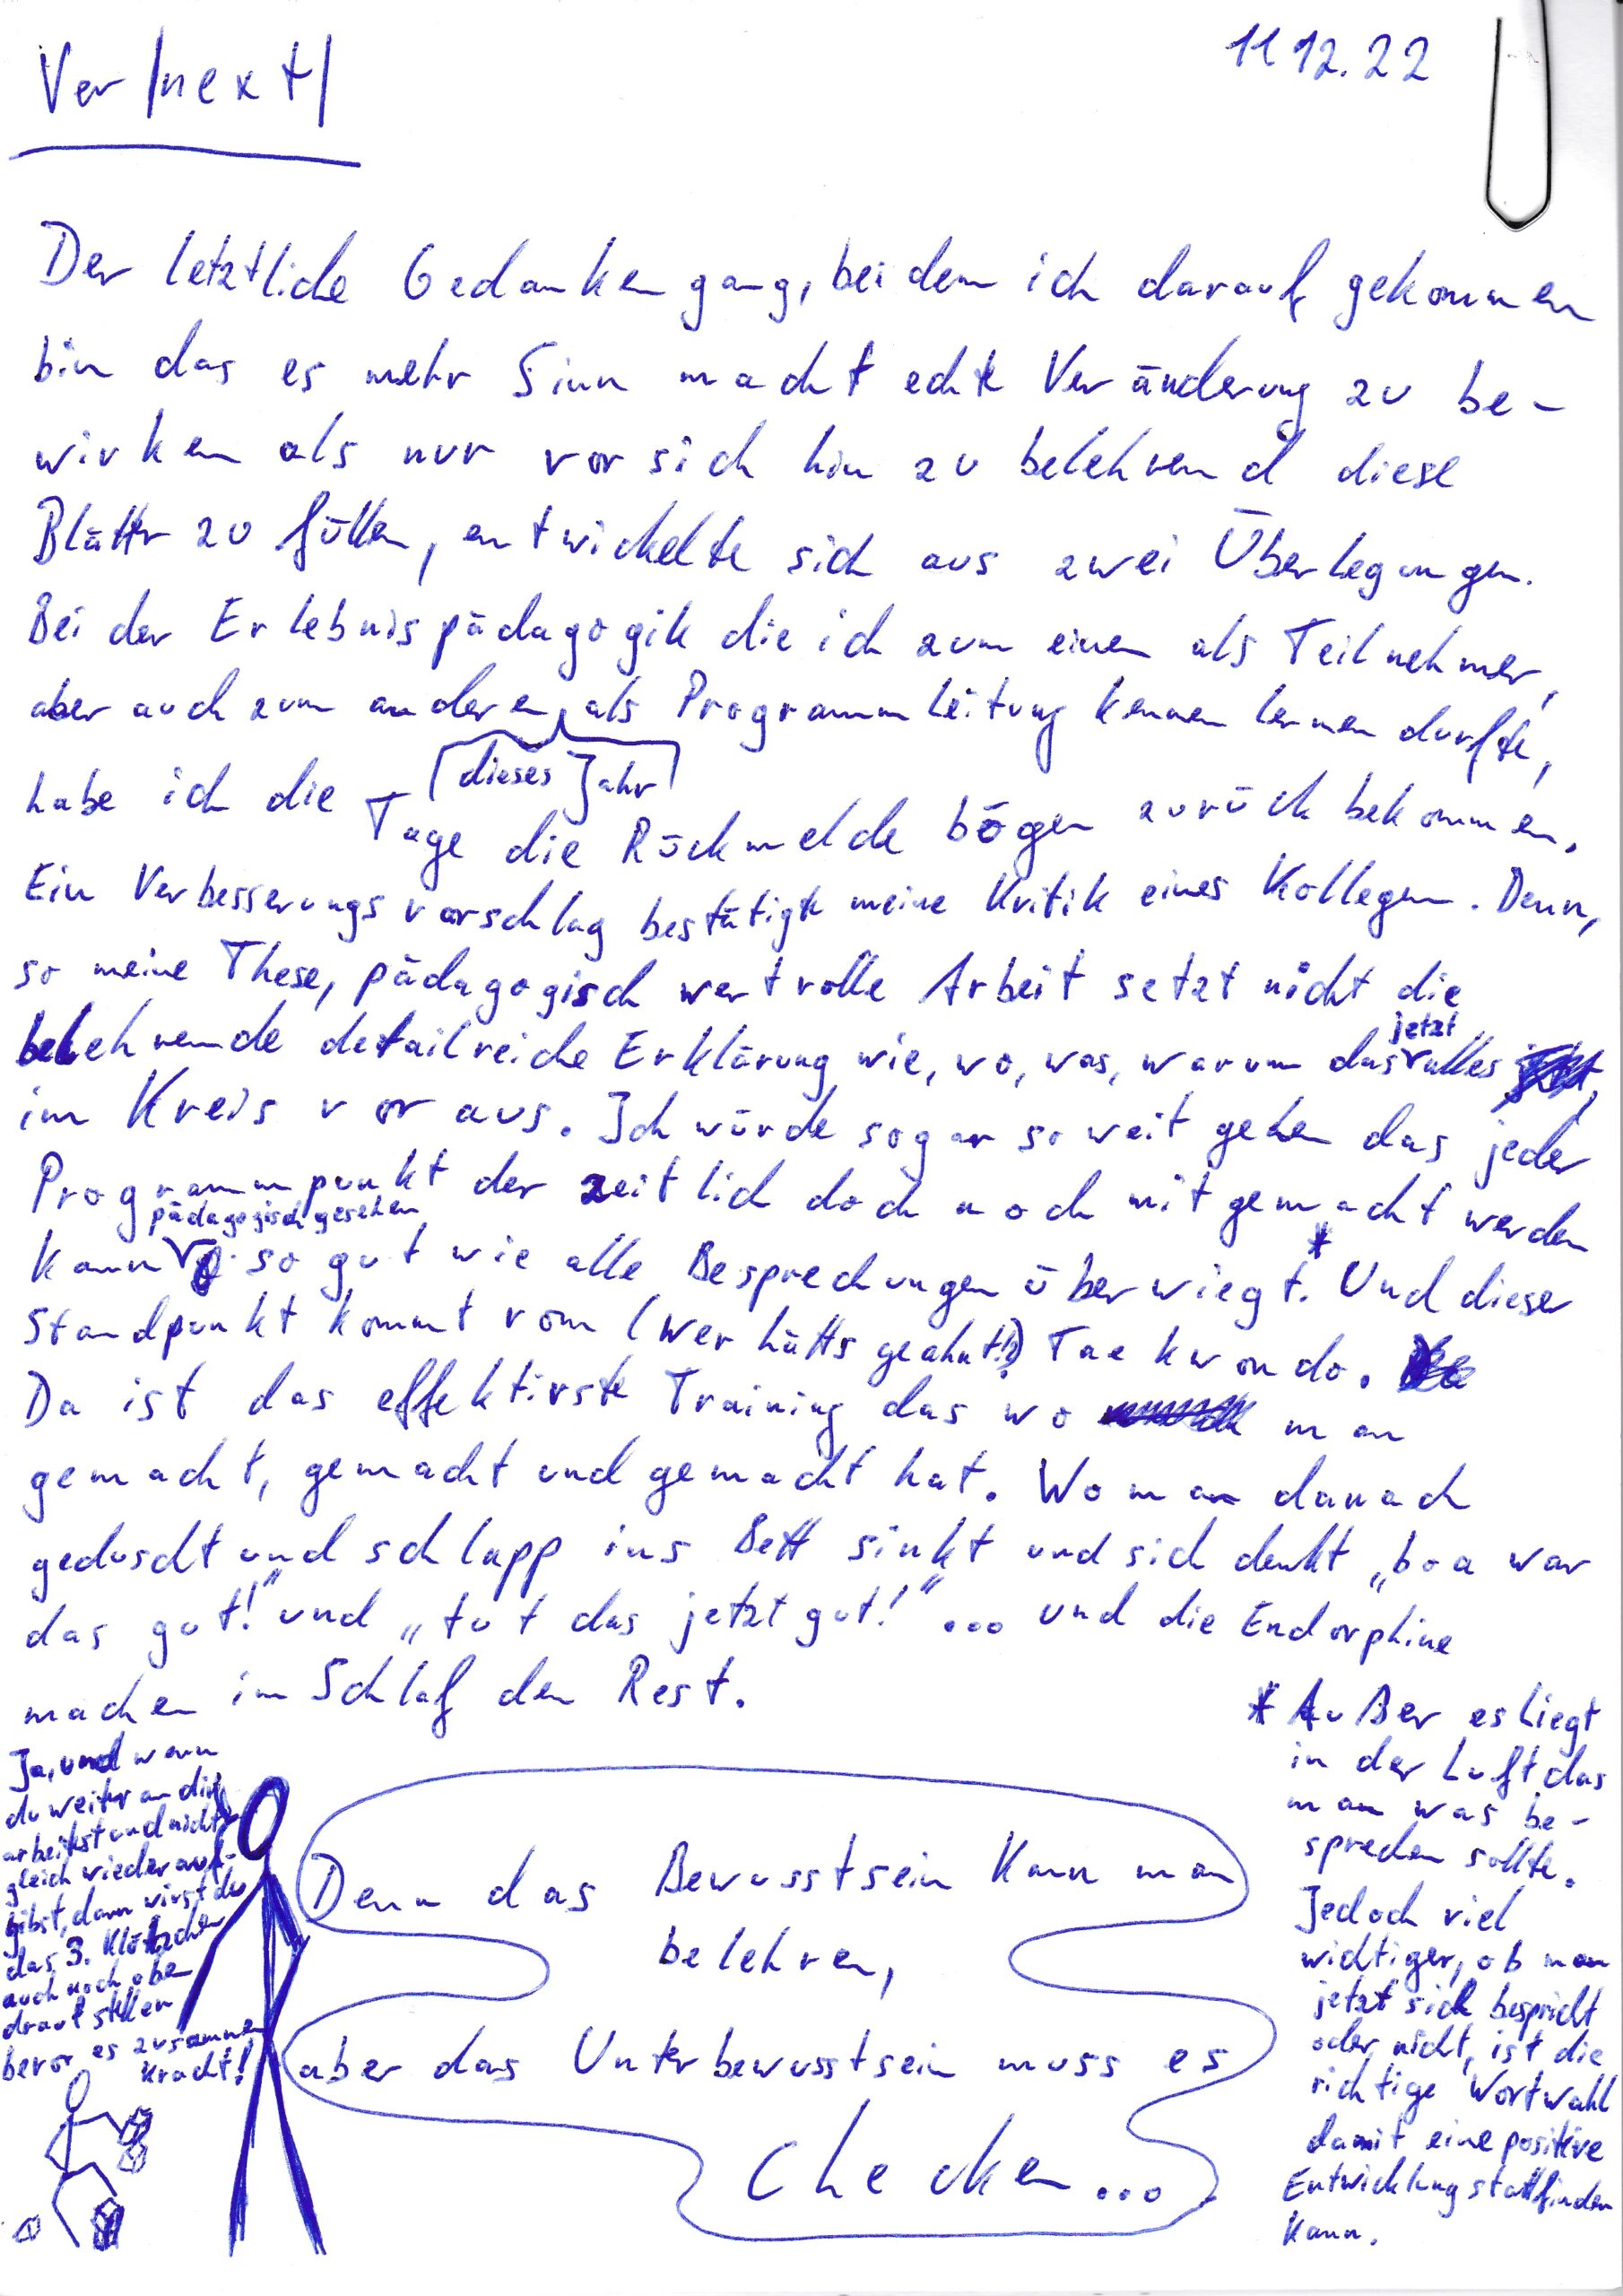 Ver/next/
11 12.22
Der letztliche Gedankengang, bei dem ich darauf gekommen
bin das es mehr Sinn macht echte Veränderung zu be-
wirken als nur vor sich hin zu belehrend diese
Blätter zu füllen, entwickelte sich aus zwei Überlegungen.
Bei der Erlebnispädagogik die ich zum einen als Teilnehmer,
aber auch zum anderen, als Programmleitung kennen lernen durfte,
dieses Jahr
habe ich die Tage die Rückmeldebögen zurück bekommen.
Ein Verbesserungsvorschlag bestätigte meine Kritik eines Kollegen. Denn,
so meine These, pädagogisch wertvolle Arbeit setzt nicht die
belehrende detailreiche Erklärung wie, wo, was, warum das jetzt alles
im Kreis voraus. Ich würde sogar so weit gehen das jeder
Programmpunkt der zeitlich doch noch mitgemacht werden
kann pädagogisch gesehen so gut wie alle Besprechungen überwiegt.* Und dieser
Standpunkt kommt vom (wer hätts geahnt!?) Taekwondo.
Da ist das effektivste Training das wo man
gemacht, gemacht und gemacht hat. Wo man danach
geduscht und schlapp ins Bett sinkt und sich denkt „boa war
das gut!" und „tut das jetzt gut!"... und die Endorphine
machen im Schlaf den Rest.
* Außer es liegt
in der Luft das
man was be-
sprechen sollte.
Jedoch viel
wichtiger, ob man
jetzt sich bespricht
oder nicht, ist die
richtige Wortwahl
damit eine positive
Entwicklung stattfinden
kann.
Ja, und wenn
du weiter an dir
arbeitest und nicht
gleich wieder auf-
gibst, dann wirst du
das 3. Klötzchen
auch noch oben
drauf stellen
bevor es zusammen
kracht!
Denn das Bewusstsein kann man
belehren,
aber das Unterbewusstsein muss es
checken...